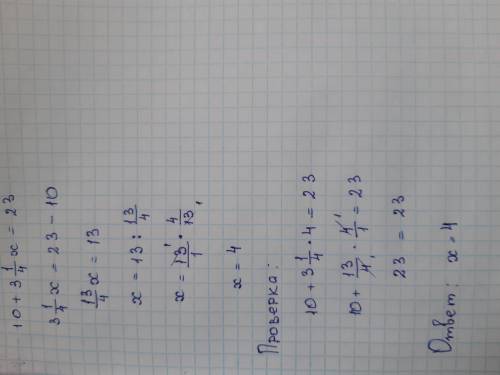 10 + 3 1/4 x = 23
3 1/4 x = 23 - 10
13/4 x = 13
x = 13 : 13/4
x = 13/1 · 4/13
x = 4
Проверка:
10 + 3 1/4 · 4 = 23
10 + 13/4 · 4/1 = 23
23 = 23
Ответ: x = 4